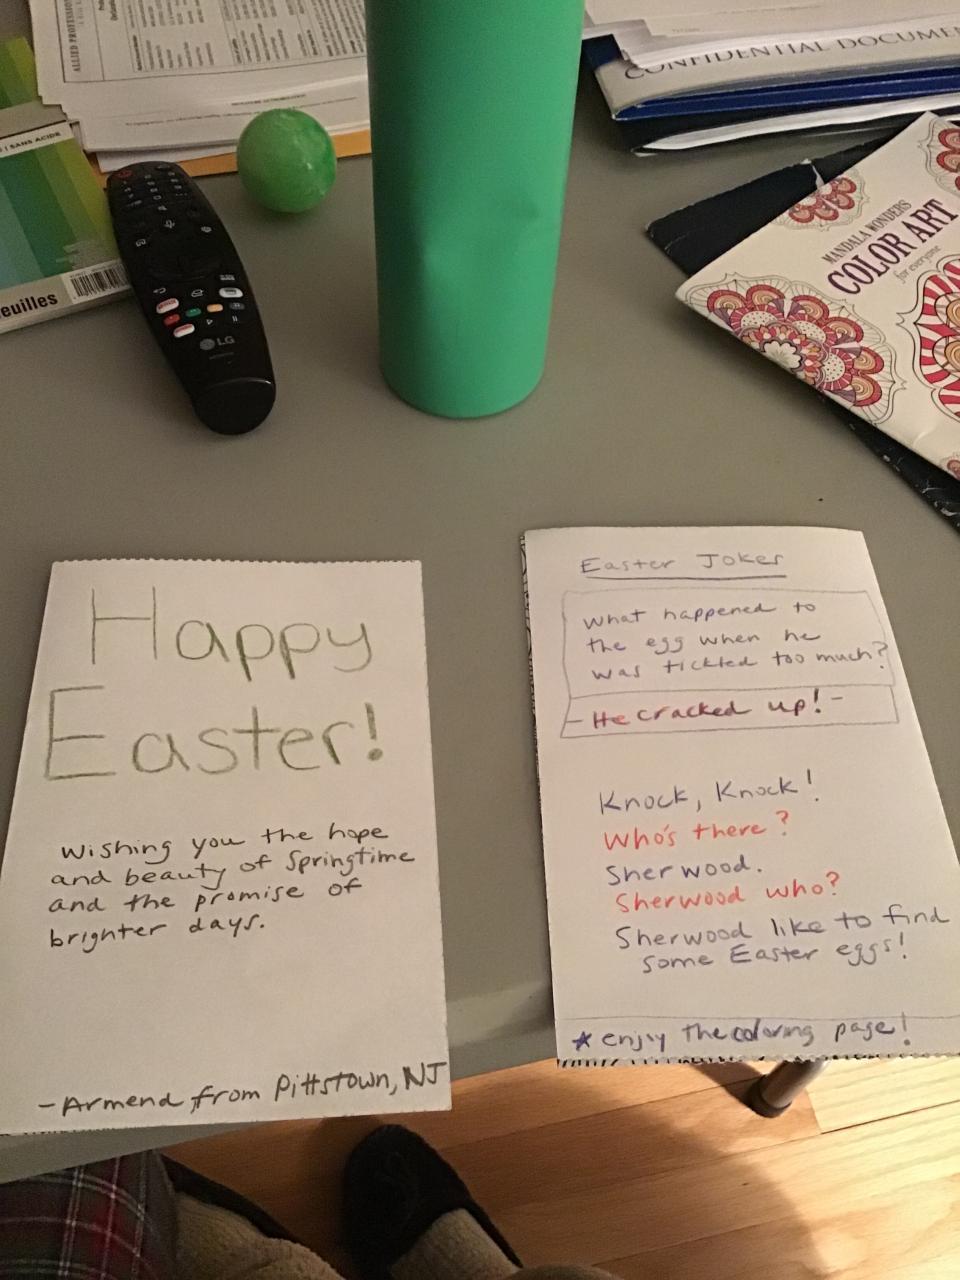 ALLIED PROFESSIO
CONFIDENTIAL DOCUME
| SANS ACIDE
euilles
LG
MANDALA WONDERS
COLOR ART
for everyone
Happy
Easter!
Wishing you the hope
and beauty of Springtime
and the promise of
brighter days.
- Armend from Pittstown, NJ
Easter Jokes
What happened to
the egg when he
was tickled too much?
- He cracked up! -
Knock, Knock!
Who's there?
Sherwood.
Sherwood who?
Sherwood like to find
some Easter eggs!
* enjoy the coloring page!